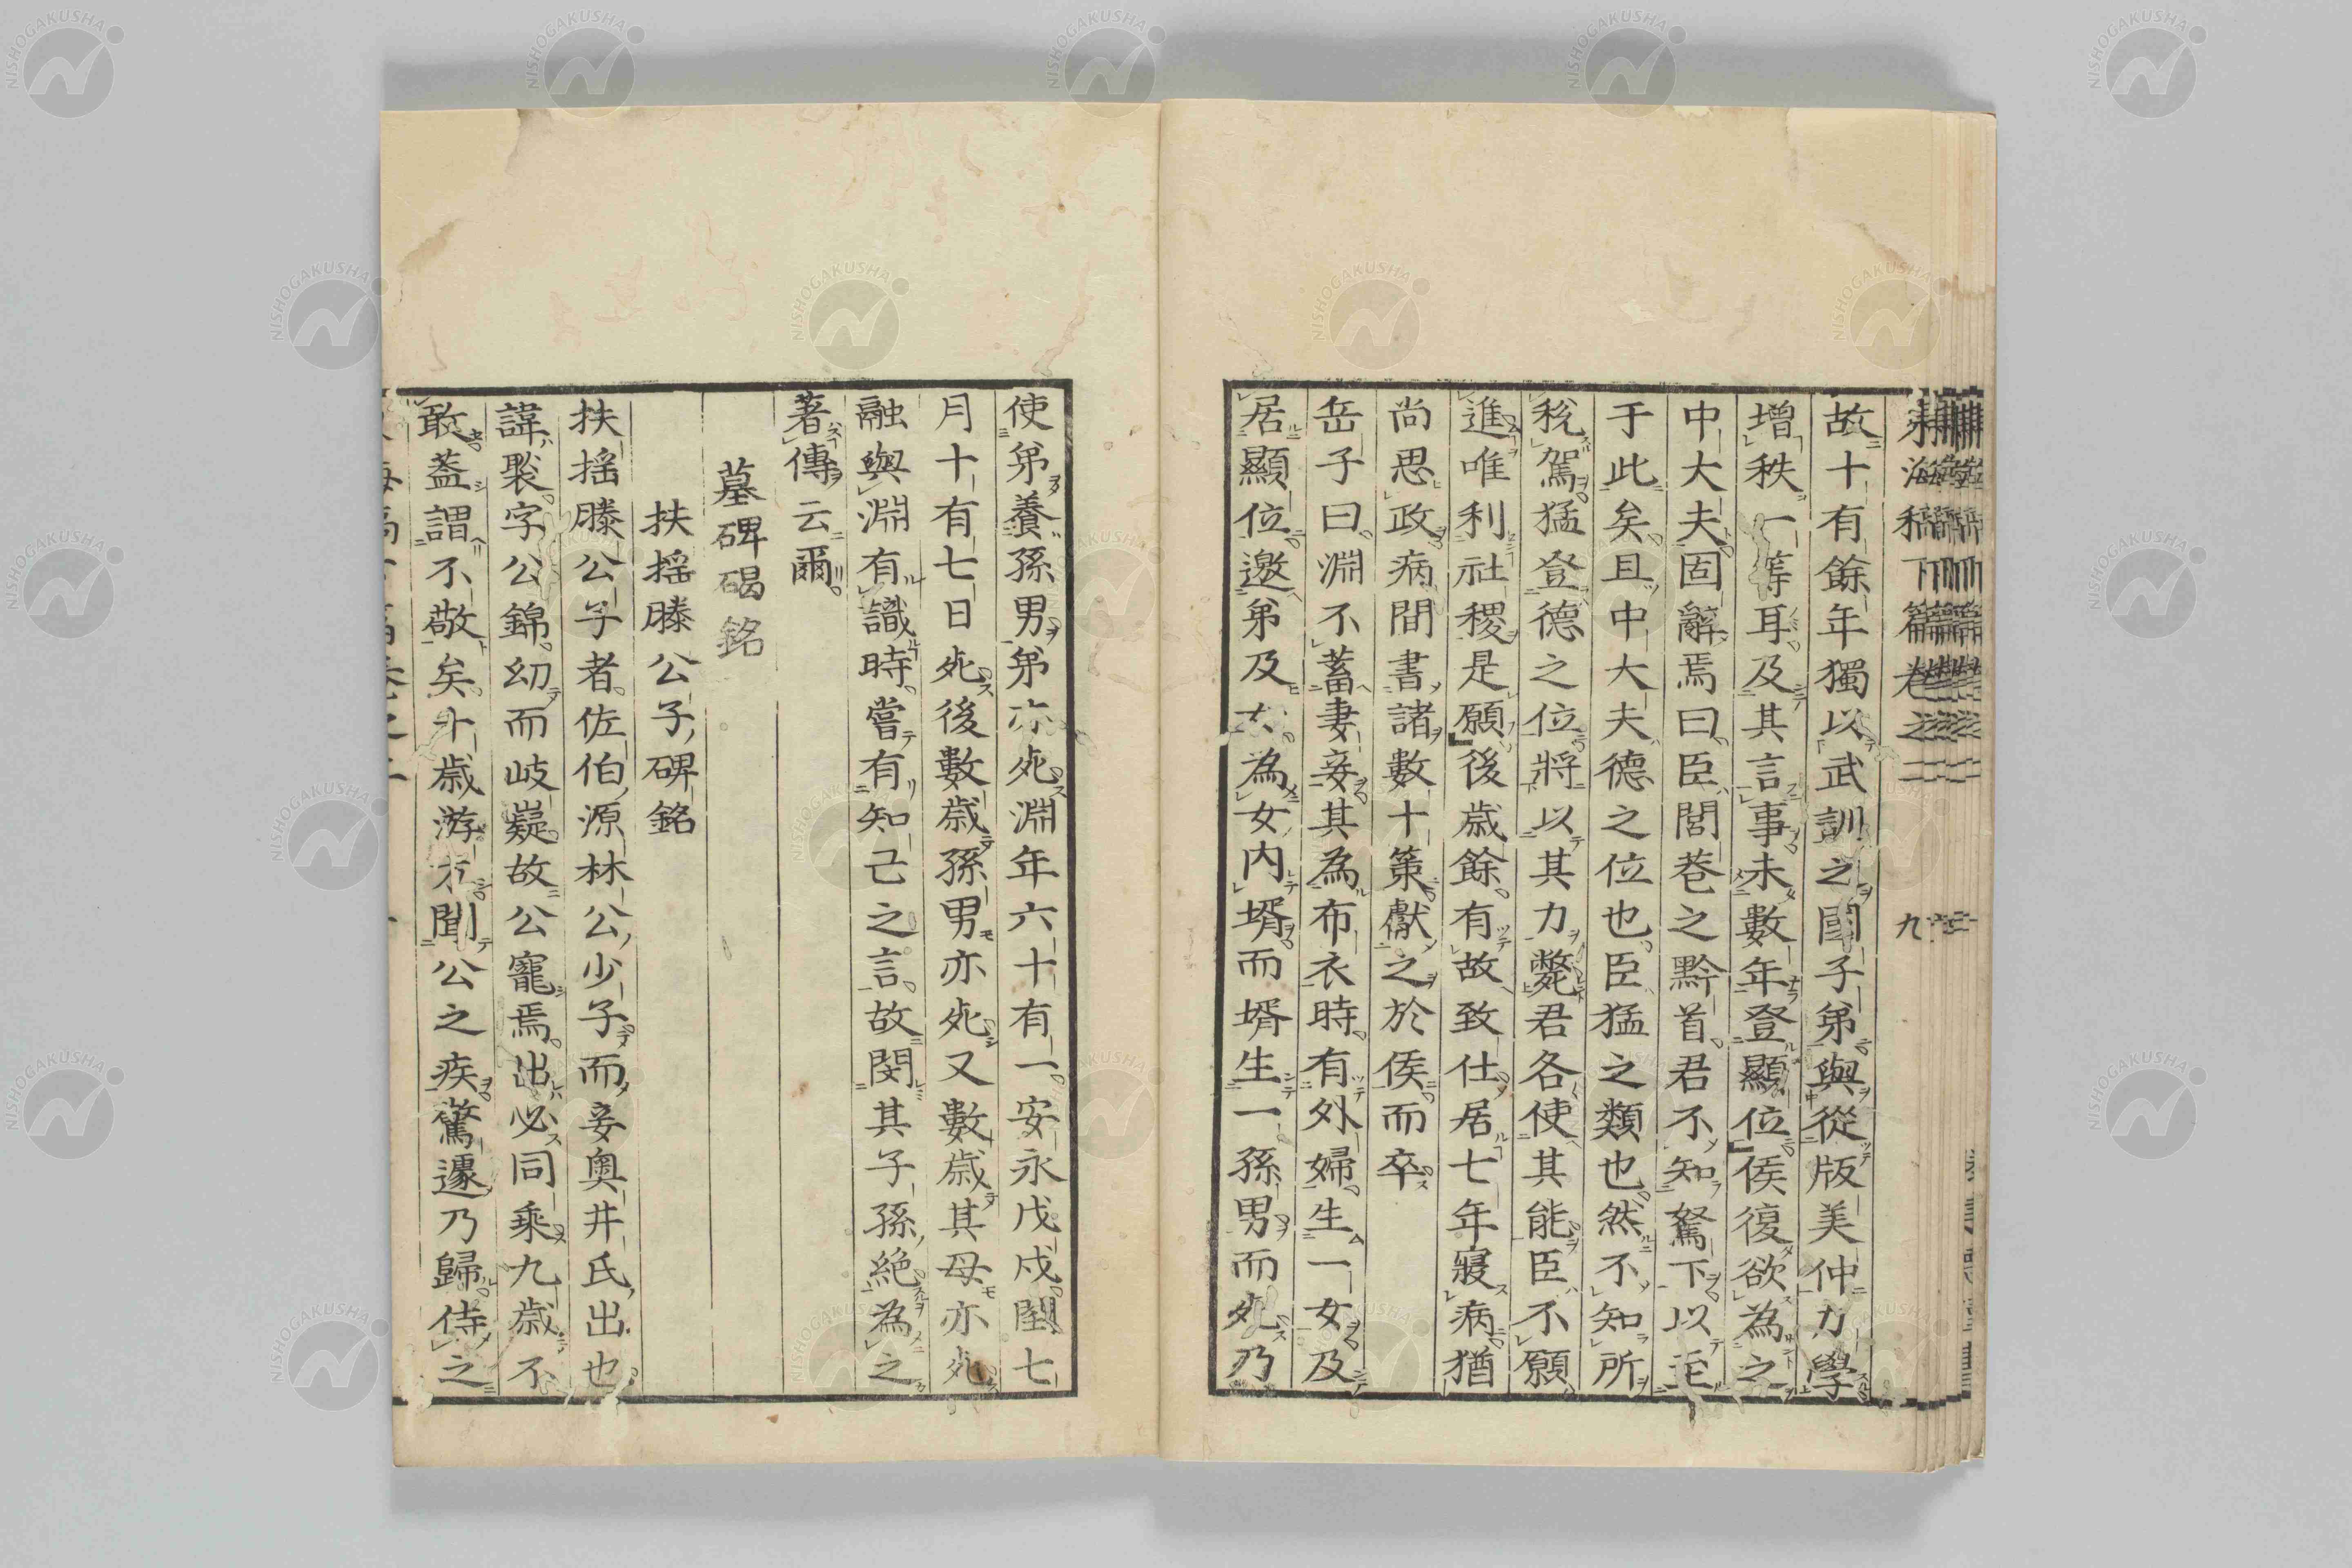 故十有餘年獨以武訓之國子弟與從版美仲力學
增秩一等耳及其言事未數年登顯位侯復欲為之
中大夫固辭焉曰臣閭巷之黔首君不知駑下以至
于此矣且中大夫德之位也臣猛之類也然不知所
稅駕猛登德之位將以其力斃君各使其能臣不願
進唯利社稷是願後歲餘有故致仕居七年寢病猶
尚思政病間書諸數十策獻之於侯而卒
岳子曰淵不蓄妻妾其為布衣時有外婦生一女及
居顯位邀弟及女為女內壻而壻生一孫男而死乃
使弟養孫男弟亦死淵年六十有一安永戊戌閏七
月十有七日死後數歲孫男亦死又數歲其母亦死
融與淵有識時嘗有知己之言故閔其子孫絕為之
著傳云爾
墓碑碣銘
扶搖滕公子碑銘
扶搖滕公子者佐伯源林公少子而妾奧井氏出也
諱褧字公錦幼而岐嶷故公寵焉出必同乘九歲不
敢蓋謂不敬矣十歲游方聞公之疾驚遽乃歸侍之
九
NISHOGAKUSHA